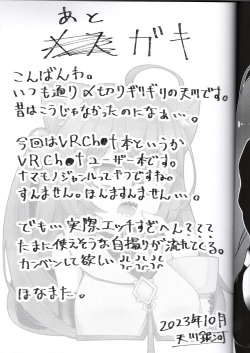 あと
メスガキ
こんばんわ。
いつも通り〆切りギリギリの天川です。
昔はこうじゃなかったのになぁ…。
今回はVRCh●t本というか
VRCh●tユーザー本です。
ナマモノジャンルってやつですね。
すんません。ほんますんません…。
でも…実際エッチすぎへん？？？？
たまに使えそうな自撮りが流れてくる。
カンベンして欲しい
ほなまた。
2023年10月
天川銀河